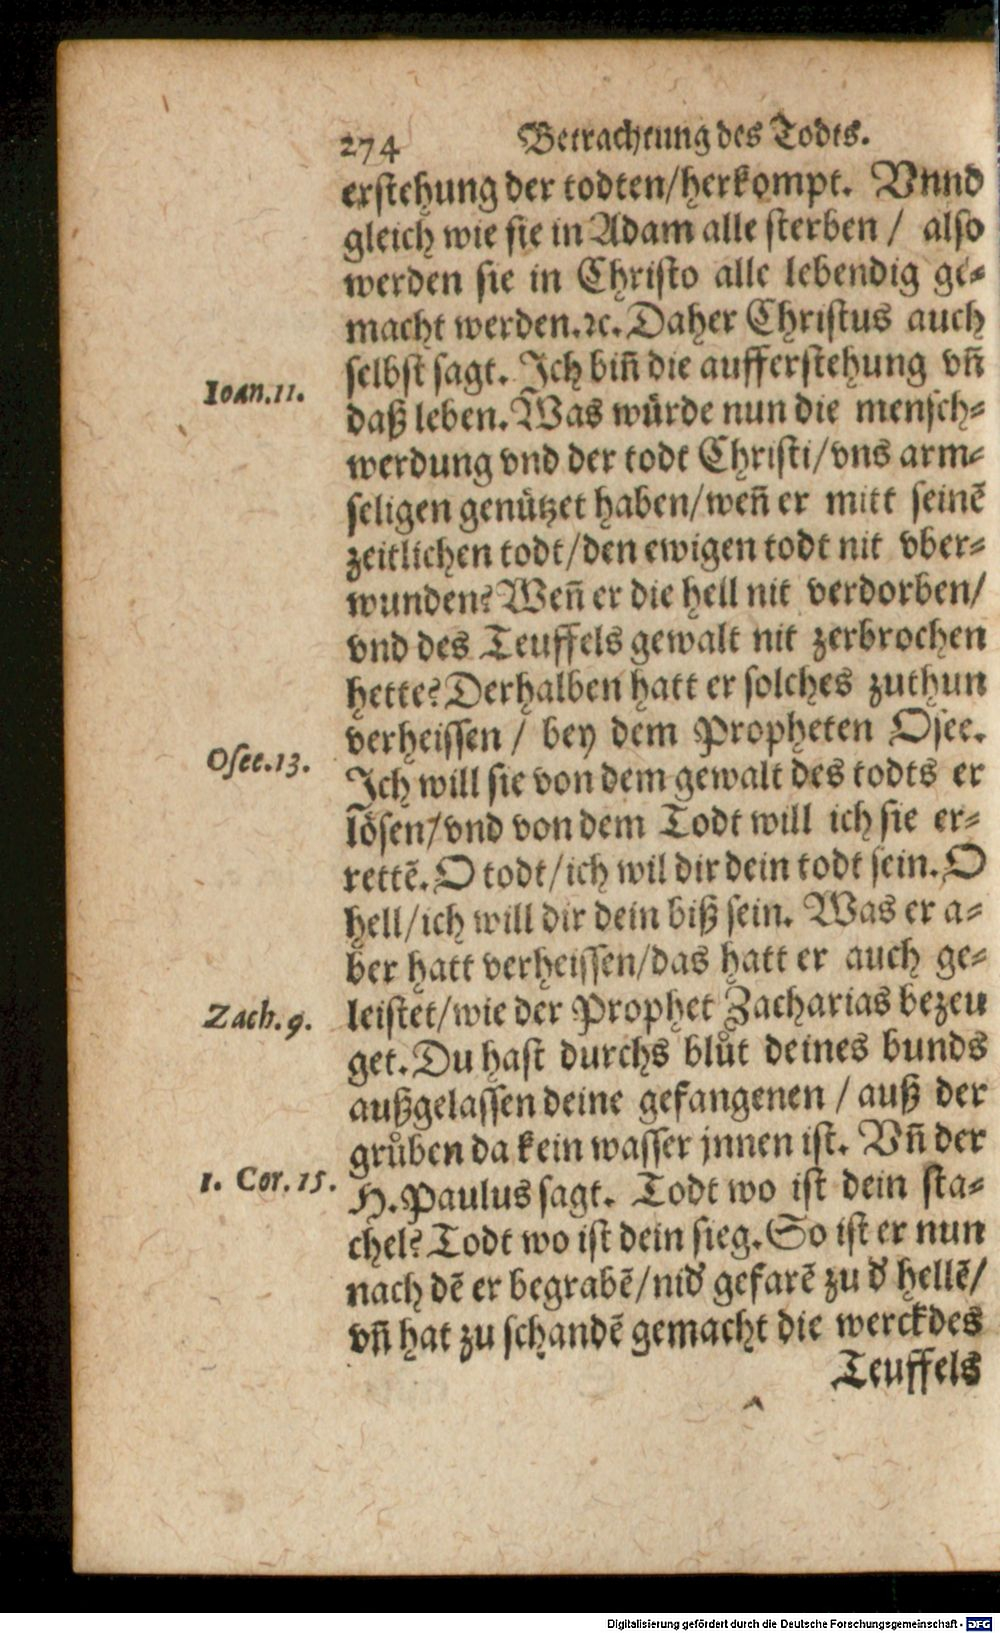 274 Betrachtung des Todts.
erstehung der todten/herkompt. Vnnd
gleich wie sie in Adam alle sterben / also
werden sie in Christo alle lebendig ge⸗
macht werden.ꝛc. Daher Christus auch
Ioan.11.
selbst sagt. Ich bin̄ die aufferstehung vn̄
daß leben. Was wuͤrde nun die mensch⸗
werdung vnd der todt Christi/vns arm⸗
seligen genuͤtzet haben/wen̄ er mitt seinē
zeitlichen todt/den ewigen todt nit vber⸗
wunden? Wen̄ er die hell nit verdorben/
vnd des Teuffels gewalt nit zerbrochen
hette? Derhalben hatt er solches zuthun
verheissen / bey dem Propheten Osee.
Osee.13.
Ich will sie von dem gewalt des todts er
loͤsen/vnd von dem Todt will ich sie er⸗
rettē. O todt/ich wil dir dein todt sein. O
hell/ich will dir dein biß sein. Was er a⸗
ber hatt verheissen/das hatt er auch ge⸗
Zach.9.
leistet/wie der Prophet Zacharias bezeu
get. Du hast durchs bluͦt deines bunds
außgelassen deine gefangenen / auß der
gruͦben da kein wasser jnnen ist. Vn̄ der
1. Cor.15.
H. Paulus sagt. Todt wo ist dein sta⸗
chel? Todt wo ist dein sieg. So ist er nun
nach dē er begrabē/nid' gefarē zu d' hellē/
vn̄ hat zu schandē gemacht die werck des
Teuffels
Digitalisierung gefördert durch die Deutsche Forschungsgemeinschaft - DFG